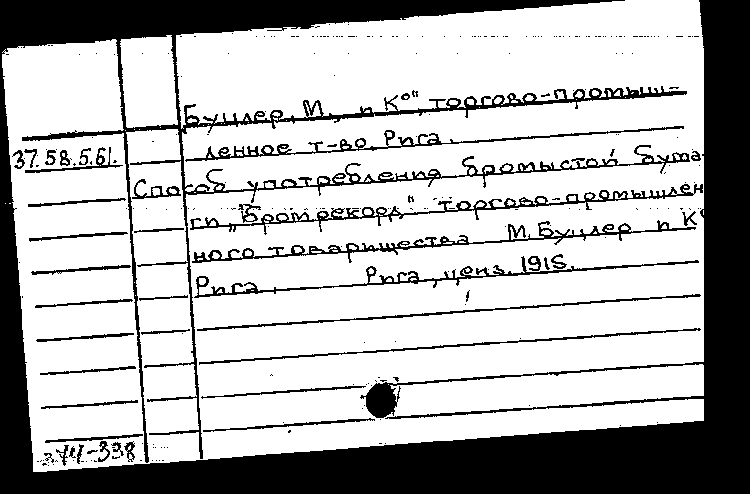 Буцлер, М., и К°", торгово-промыш-
ленное т-во. Рига.
37.58.5.61.
Способ употребления бромыстой бума-
ги „Бромрекорд" торгово-промышлен
ного товарищества М. Буцлер и К°
Рига. Рига, ценз. 1915.
374-338